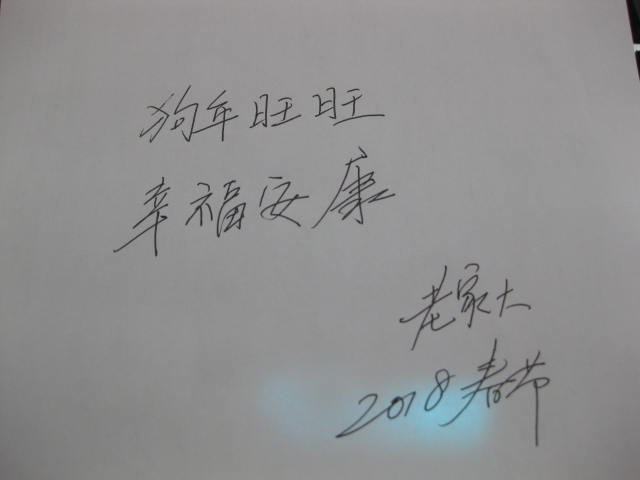 狗年旺旺
幸福安康
老家大
2018春节